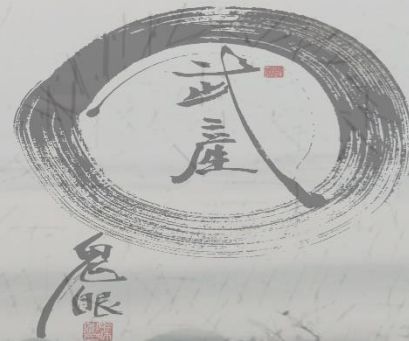 武産
鬼眼